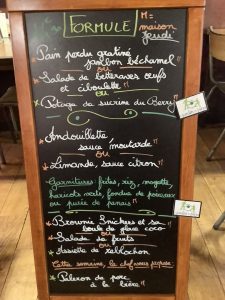 FORMULE
M = maison
Jeudi
Pain perdu gratiné
jambon béchamel
ou
Salade de betteraves œufs
et ciboulette
ou
Potage du
sucrine du Berry
Andouillette
sauce moutarde
ou
Limande, sauce citron
Garnitures: frites, riz, mogette,
haricots verts, fondue de poireaux
ou purée de panais
Brownie Snickers et sa
boule de glace coco
ou
Salade de fruits
ou
Assiette de reblochon
Cette semaine, le chef vous propose
Paleron de porc
à la bière